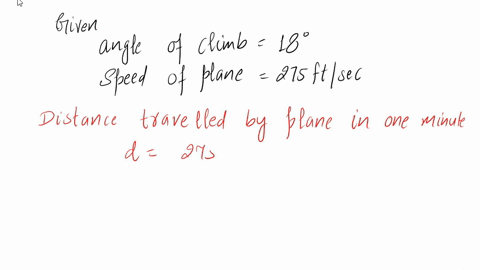 Given
angle of climb = 18°
Speed of plane = 275 ft/sec
Distance travelled by plane in one minute
d = 275